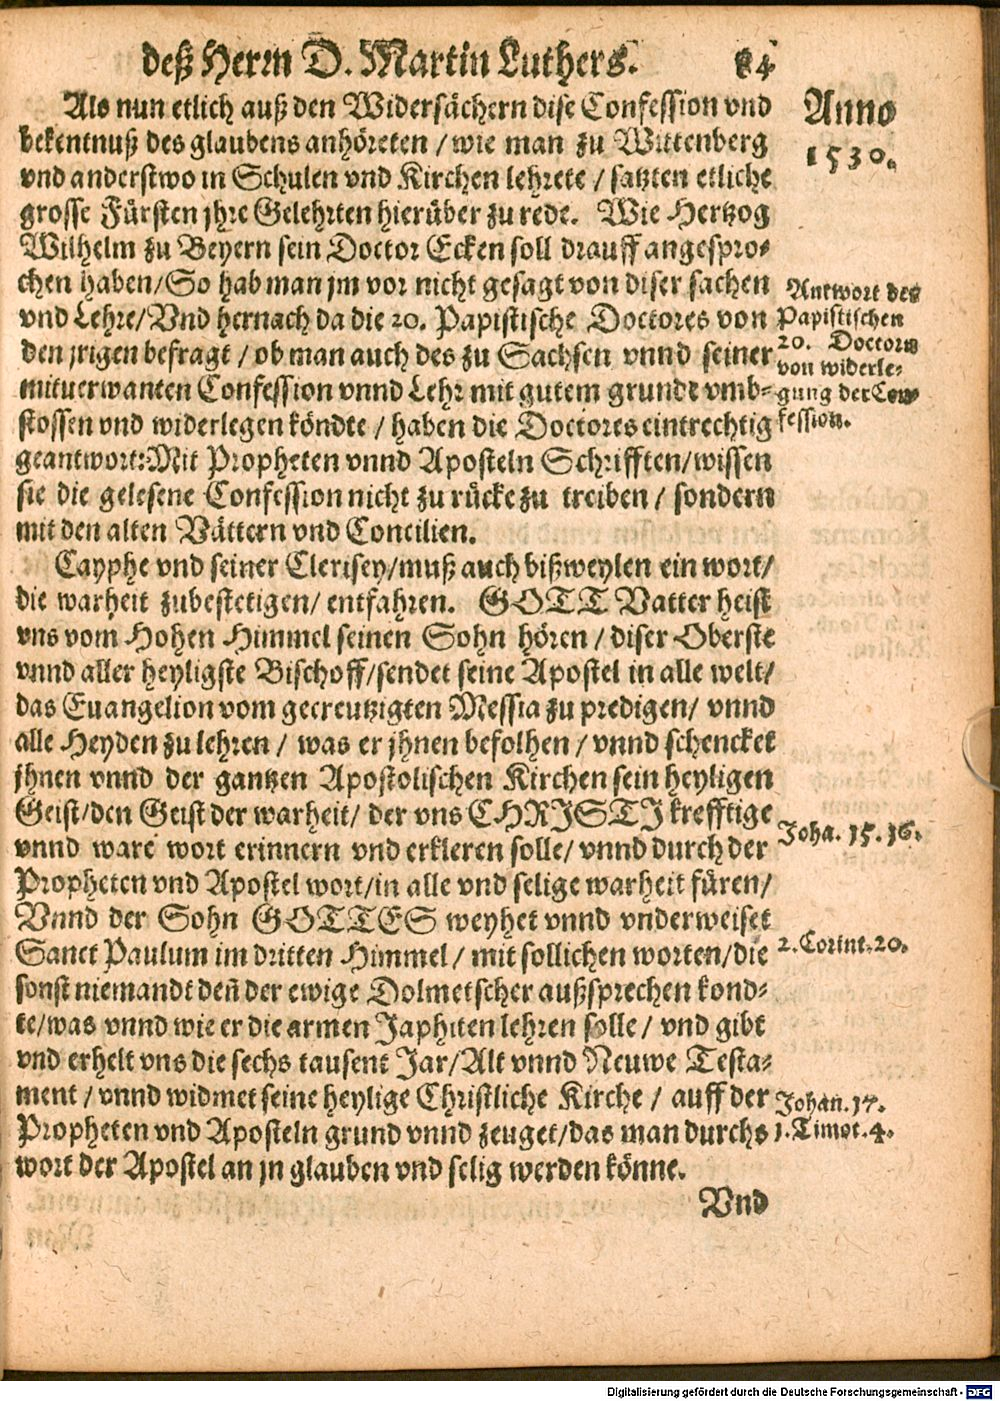 deß Herrn D. Martin Luthers. 84
Als nun etlich auß den Widersächern dise Confession vnd
bekentnuß des glaubens anhöreten / wie man zu Wittenberg
vnd anderstwo in Schulen vnd Kirchen lehrete / satzten etliche
grosse Fürsten jhre Gelehrten hierüber zu rede. Wie Hertzog
Wilhelm zu Beyern sein Doctor Ecken soll drauff angespro-
chen haben/So hab man jm vor nicht gesagt von diser sachen
vnd Lehre/Vnd hernach da die 20. Papistische Doctores von
den jrigen befragt / ob man auch des zu Sachsen vnnd seiner
mituerwanten Confession vnnd Lehr mit gutem grunde vmb-
stossen vnd widerlegen köndte / haben die Doctores eintrechtig
geantwort:Mit Propheten vnnd Aposteln Schrifften/wissen
sie die gelesene Confession nicht zu rücke zu treiben / sondern
mit den alten Vättern vnd Concilien.
Cayphe vnd seiner Clerisey/muß auch bißweylen ein wort/
die warheit zubestetigen/ entfahren. GOTT Vatter heist
vns vom Hohen Himmel seinen Sohn hören / diser Oberste
vnnd aller heyligste Bischoff/sendet seine Apostel in alle welt/
das Euangelion vom gecreutzigten Messia zu predigen/ vnnd
alle Heyden zu lehren / was er jhnen befolhen / vnnd schencket
jhnen vnnd der gantzen Apostolischen Kirchen sein heyligen
Geist/den Geist der warheit/ der vns CHRISTI krefftige
vnnd ware wort erinnern vnd erkleren solle/ vnnd durch der
Propheten vnd Apostel wort/in alle vnd selige warheit füren/
Vnnd der Sohn GOTTES weyhet vnnd vnderweiset
Sanct Paulum im dritten Himmel / mit sollichen worten/die
sonst niemandt deñ der ewige Dolmetscher außsprechen kond-
te/was vnnd wie er die armen Japhiten lehren solle / vnd gibt
vnd erhelt vns die sechs tausent Jar/Alt vnnd Neuwe Testa-
ment / vnnd widmet seine heylige Christliche Kirche / auff der
Propheten vnd Aposteln grund vnnd zeuget/das man durchs
wort der Apostel an jn glauben vnd selig werden könne.
Vnd
Anno
1530.
Antwort des
Papistischen
20. Doctorn
von widerle-
gung der Con-
fession.
Joha. 15. 16.
2. Corint. 20.
Johan. 17.
1. Timot. 4.
Digitalisierung gefördert durch die Deutsche Forschungsgemeinschaft - DFG